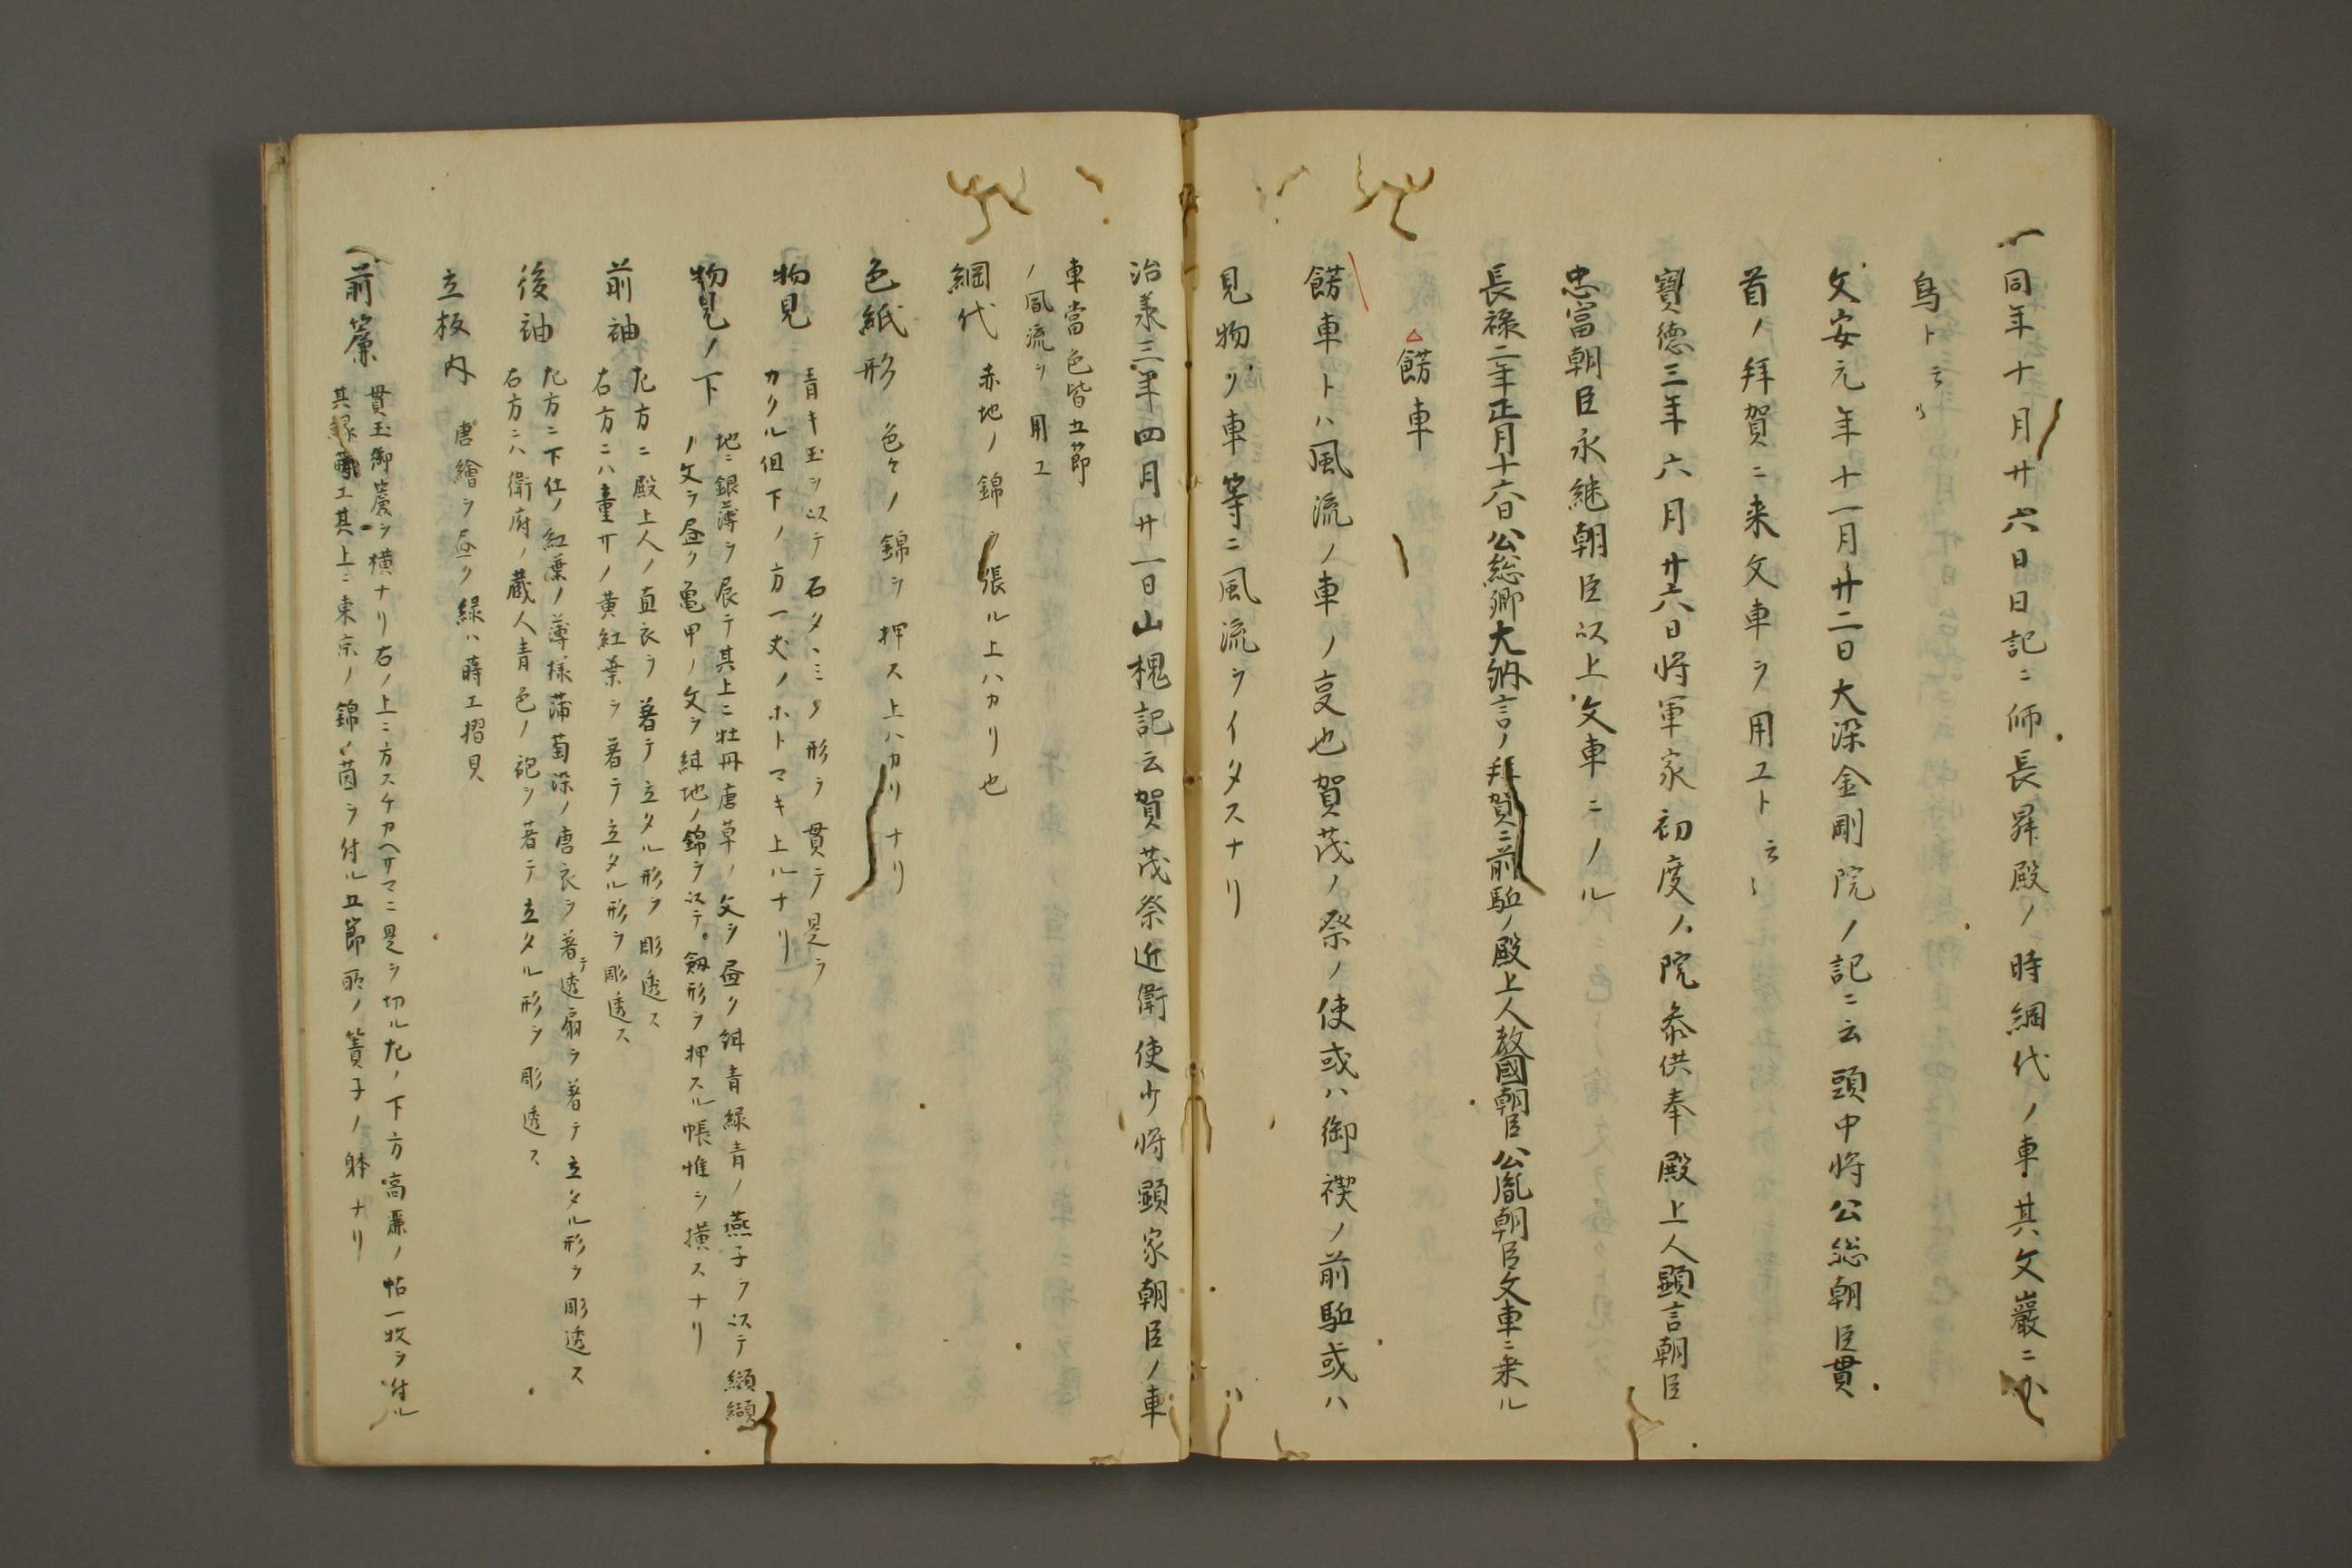 一同年十月廿六日日記ニ師長昇殿ノ時網代ノ車其文巌ニ小
鳥ト云々
文安元年十一月廿二日大染金剛院ノ記ニ云頭中将公総朝臣貫
首ノ拜賀ニ来文車ヲ用ユト云々
寶徳三年六月廿六日将軍家初度ノ院參供奉殿上人顕言朝臣
忠富朝臣永継朝臣以上文車ニノル
長禄二年正月十六日公総卿大納言ノ拜賀ニ前駈ノ殿上人教國朝臣公胤朝臣文車ニ乗ル
餝車
餝車トハ風流ノ車ノ㕝也賀茂ノ祭ノ使或ハ御禊ノ前駈或ハ
見物ノ車等ニ風流ヲイタスナリ
治承三年四月廿一日山槐記云賀茂祭近衛使少将顕家朝臣ノ車
車當色皆五節
ノ風流ヲ用ユ
網代 赤地ノ錦ヲ張ル上ハカリ也
色紙形 色々ノ錦ヲ押ス上ハカリナリ
物見 青キ玉ヲ以テ石タヽミノ形ヲ貫テ是ヲ
カクル但下ノ方一丈ノホトマキ上ルナリ
物見ノ下 地ニ銀薄ヲ展テ其上ニ牡丹唐草ノ文ヲ昼ク紺青緑青ノ燕子ヲ以テ纐纈
ノ文ヲ昼ク亀甲ノ文ヲ紺地ノ錦ヲ以テ劔形ヲ押スル帳惟ヲ摸スナリ
前袖 左方ニ殿上人ノ直衣ヲ著テ立タル形ヲ彫透ス
右方ニハ童女ノ黄紅葉ヲ著テ立タル形ヲ彫透ス
後袖 左方ニ下仕ノ紅葉ノ薄様蒲萄染ノ唐衣ヲ著テ透扇ヲ著テ立タル形ヲ彫透ス
右方ニハ衛府ノ蔵人青色ノ袍ヲ著テ立タル形ヲ彫透ス
立板内 唐繪ヲ昼ク緑ハ蒔エ摺貝
一前簾 貫玉御簾ヲ横ナリ右ノ上ニ方スチカヘサマニ是ヲ切ル左ノ下方高麗ノ帖一枚ヲ付ル
其縁エ其上ニ東京ノ錦ノ茵ヲ付ル五節所ノ簀子ノ躰ナリ